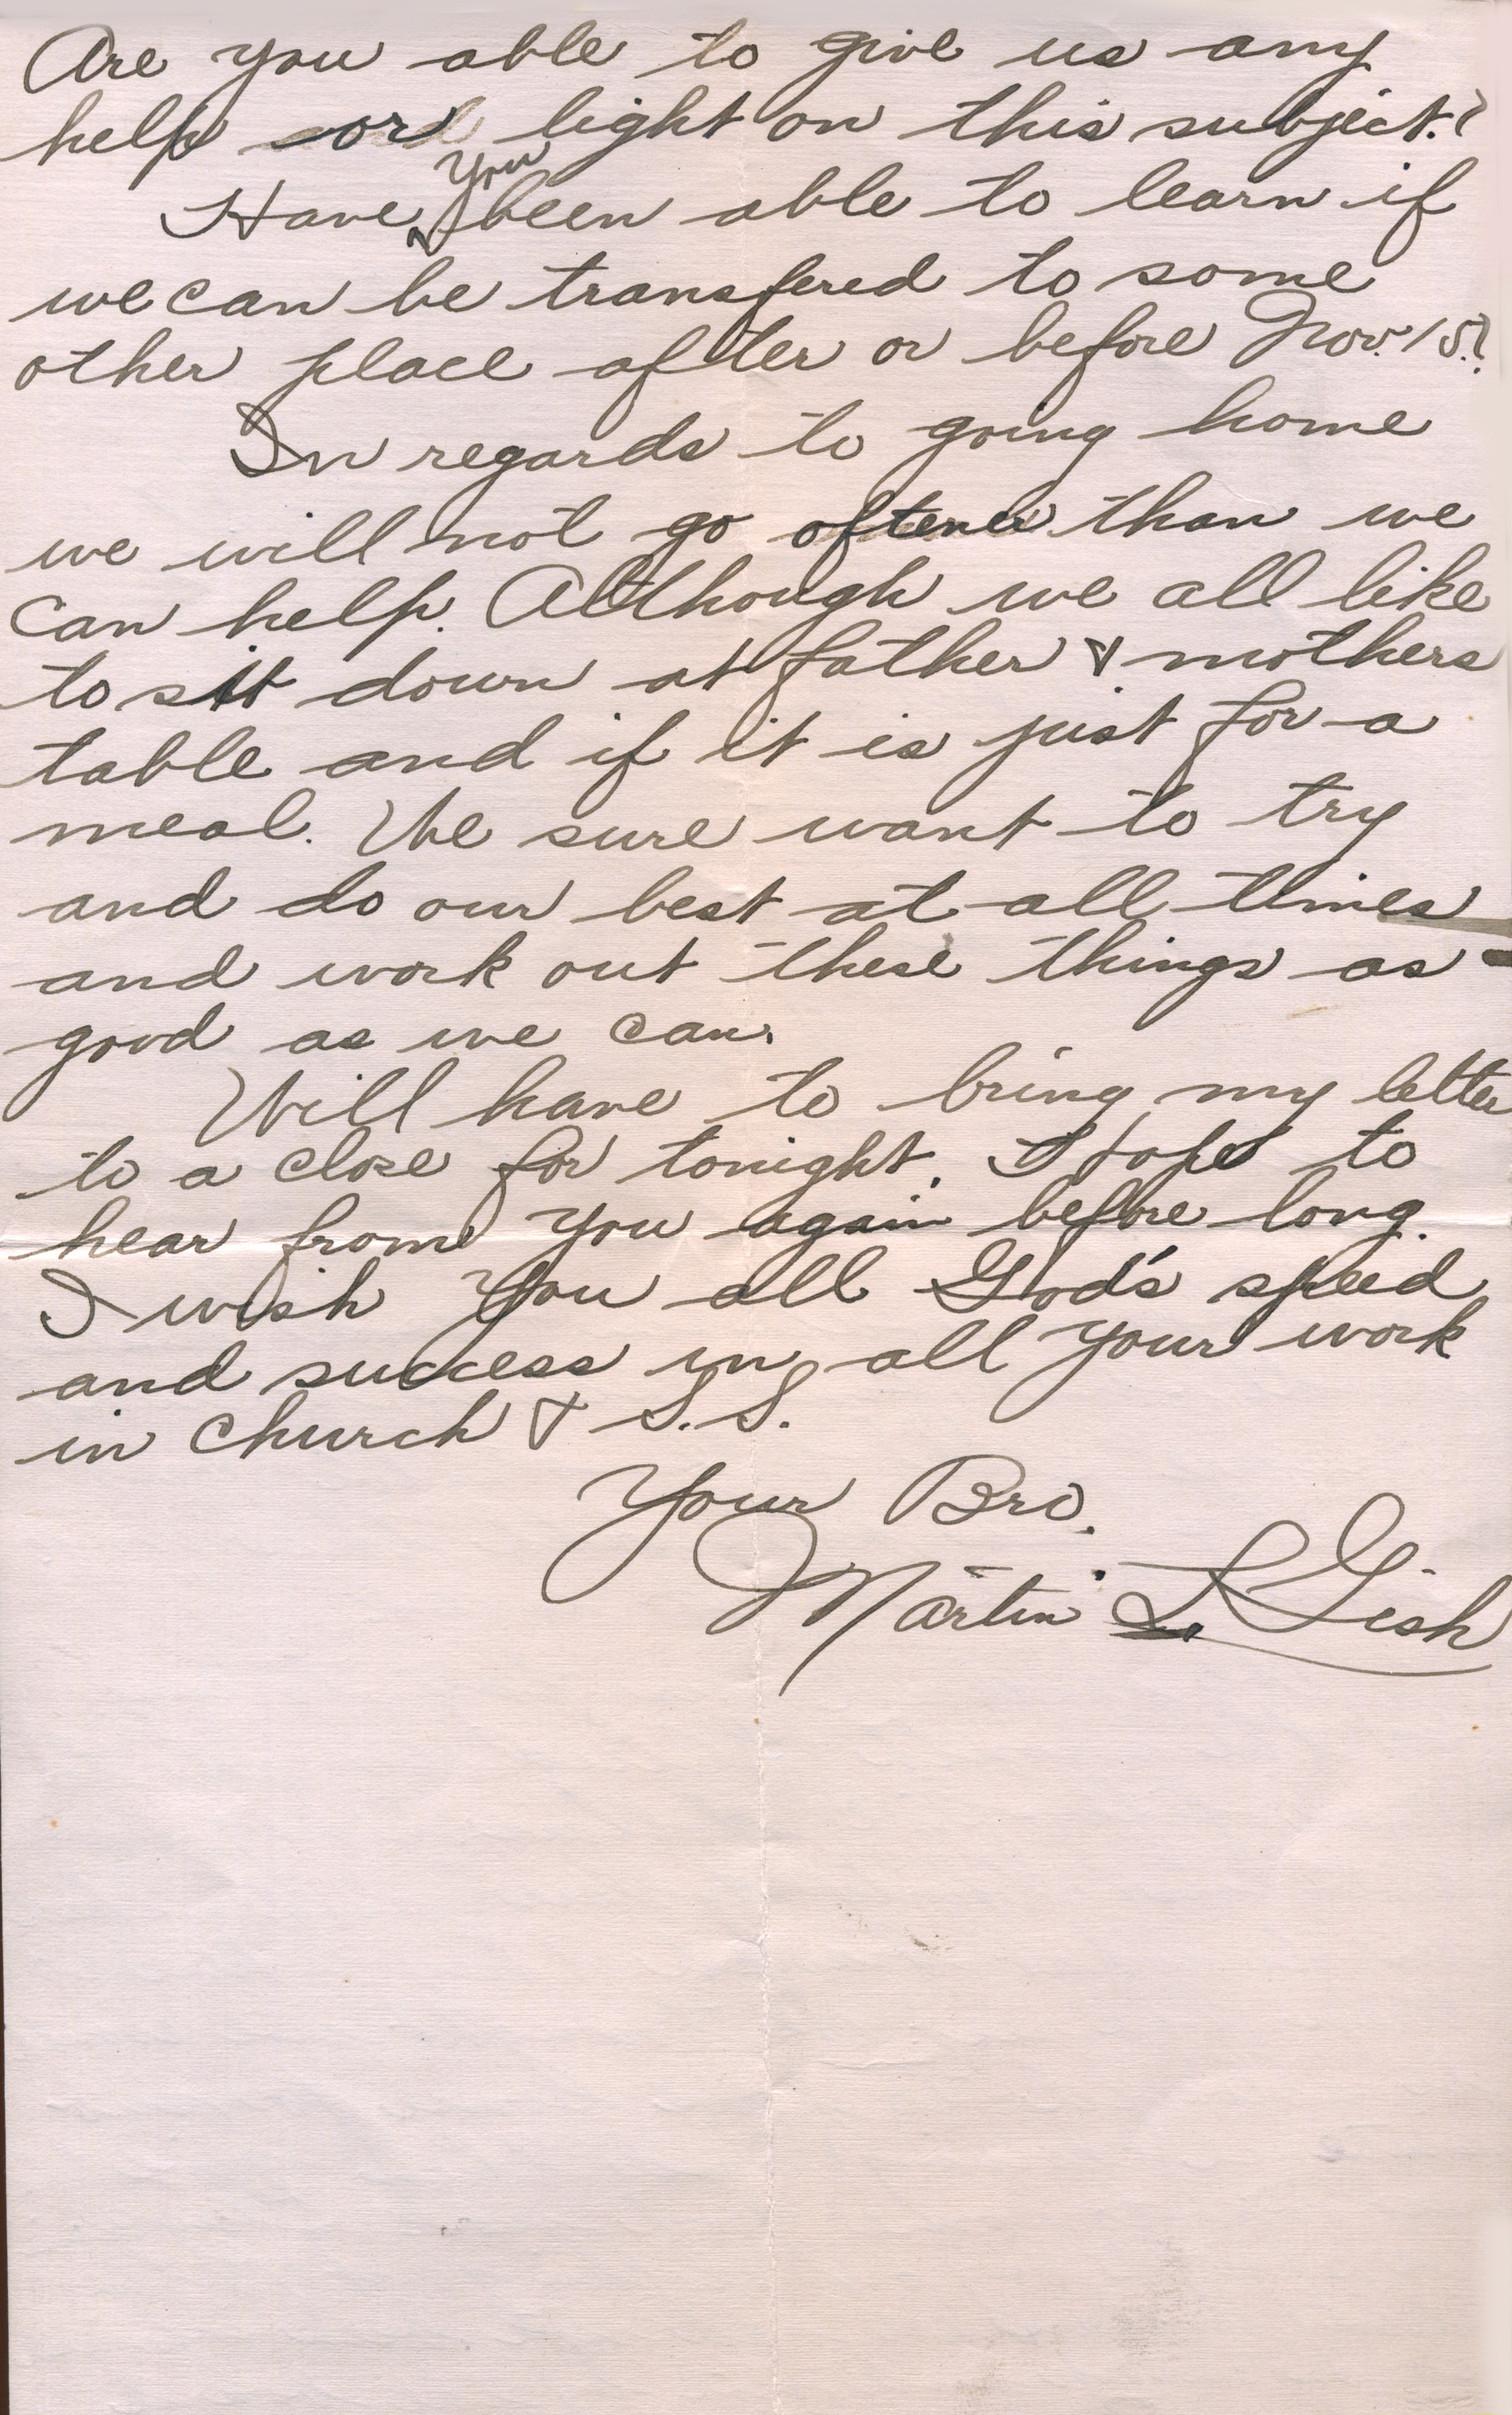 Are you able to give us any
help or light on this subject.?
Have you been able to learn if
we can be transfered to some
other place after or before Nov. 15.?
In regards to going home
we will not go oftener than we
can help. Although we all like
to sit down at father & mothers
table and if it is just for a
meal. We sure want to try
and do our best at all times
and work out these things as
good as we can.
Will have to bring my letter
to a close for tonight. I hope to
hear from you again before long.
I wish you all God's speed
and success in all your work
in church & S.S.
Your Bro.
Martin L. Gish